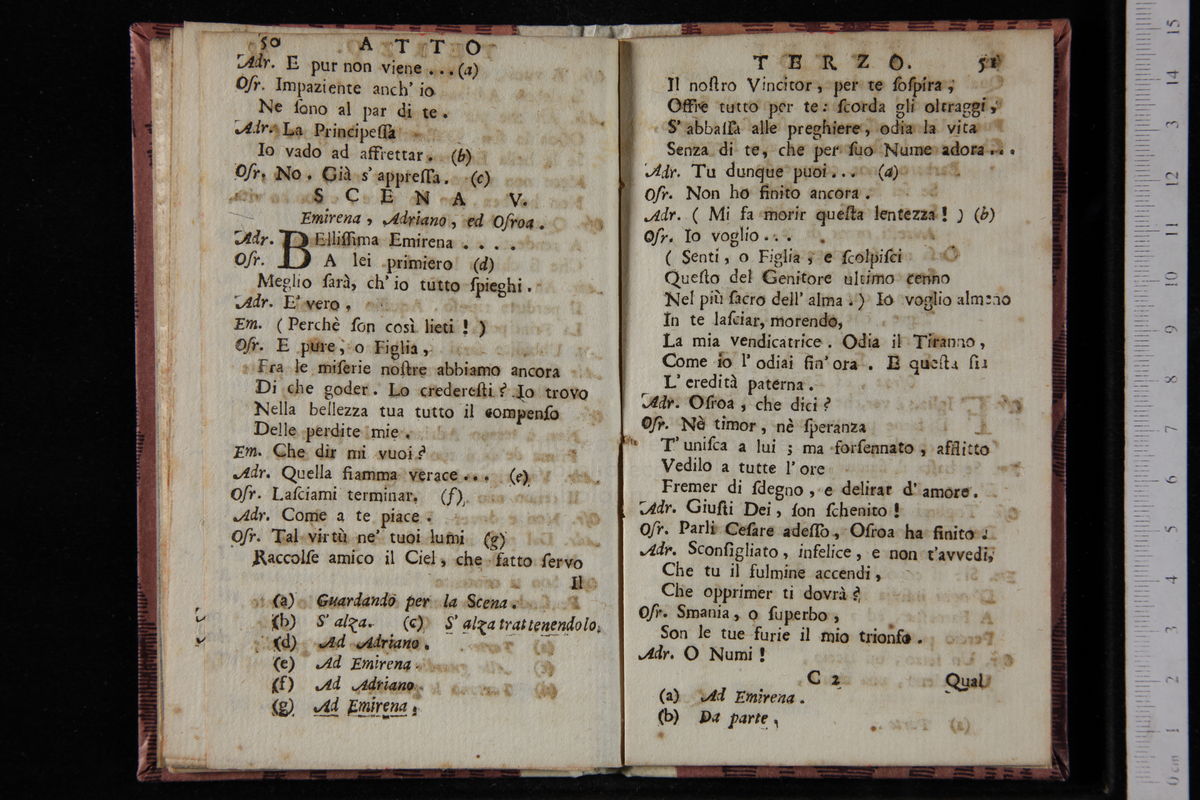 50 ATTO
Adr. E pur non viene ...(a)
Osr. Impaziente anch' io
Ne ſono al par di te.
Adr. La Principeſſa
Io vado ad affrettar. (b)
Osr. No. Già s' appreſſa. (c)
SCENA V.
Emirena, Adriano, ed Oſroa.
Adr. BElliſſima Emirena ....
Osr. A lei primiero (d)
Meglio ſarà, ch' io tutto ſpieghi.
Adr. E' vero,
Em. (Perchè ſon così lieti!)
Osr. E pure, o Figlia,
Fra le miſerie noſtre abbiamo ancora
Di che goder. Lo credereſti? Io trovo
Nella bellezza tua tutto il compenſo
Delle perdite mie.
Em. Che dir mi vuoi?
Adr. Quella fiamma verace... (e)
Osr. Laſciami terminar. (f)
Adr. Come a te piace.
Osr. Tal virtù ne' tuoi lumi (g)
Raccolſe amico il Ciel, che fatto ſervo
Il
(a) Guardando per la Scena.
(b) S' alza. (c) S' alza trattenendolo.
(d) Ad Adriano.
(e) Ad Emirena.
(f) Ad Adriano.
(g) Ad Emirena.
TERZO. 51
Il noſtro Vincitor, per te ſoſpira,
Offre tutto per te: ſcorda gli oltraggi,
S' abbaſſa alle preghiere, odia la vita
Senza di te, che per ſuo Nume adora...
Adr. Tu dunque puoi... (a)
Osr. Non ho finito ancora.
Adr. (Mi fa morir queſta lentezza!) (b)
Osr. Io voglio...
(Senti, o Figlia, e ſcolpiſci
Queſto del Genitore ultimo cenno
Nel più ſacro dell' alma.) Io voglio almeno
In te laſciar, morendo,
La mia vendicatrice. Odia il Tiranno,
Come io l' odiai fin' ora. E queſta ſia
L' eredità paterna.
Adr. Oſroa, che dici?
Osr. Nè timor, nè ſperanza
T' uniſca a lui; ma forſennato, afflitto
Vedilo a tutte l' ore
Fremer di ſdegno, e delirar d' amore.
Adr. Giuſti Dei, ſon ſchenito!
Osr. Parli Ceſare adeſſo, Oſroa ha finito.
Adr. Sconſigliato, infelice, e non t'avvedi,
Che tu il fulmine accendi,
Che opprimer ti dovrà?
Osr. Smania, o ſuperbo,
Son le tue furie il mio trionfo.
Adr. O Numi!
C 2 Qual
(a) Ad Emirena.
(b) Da parte,